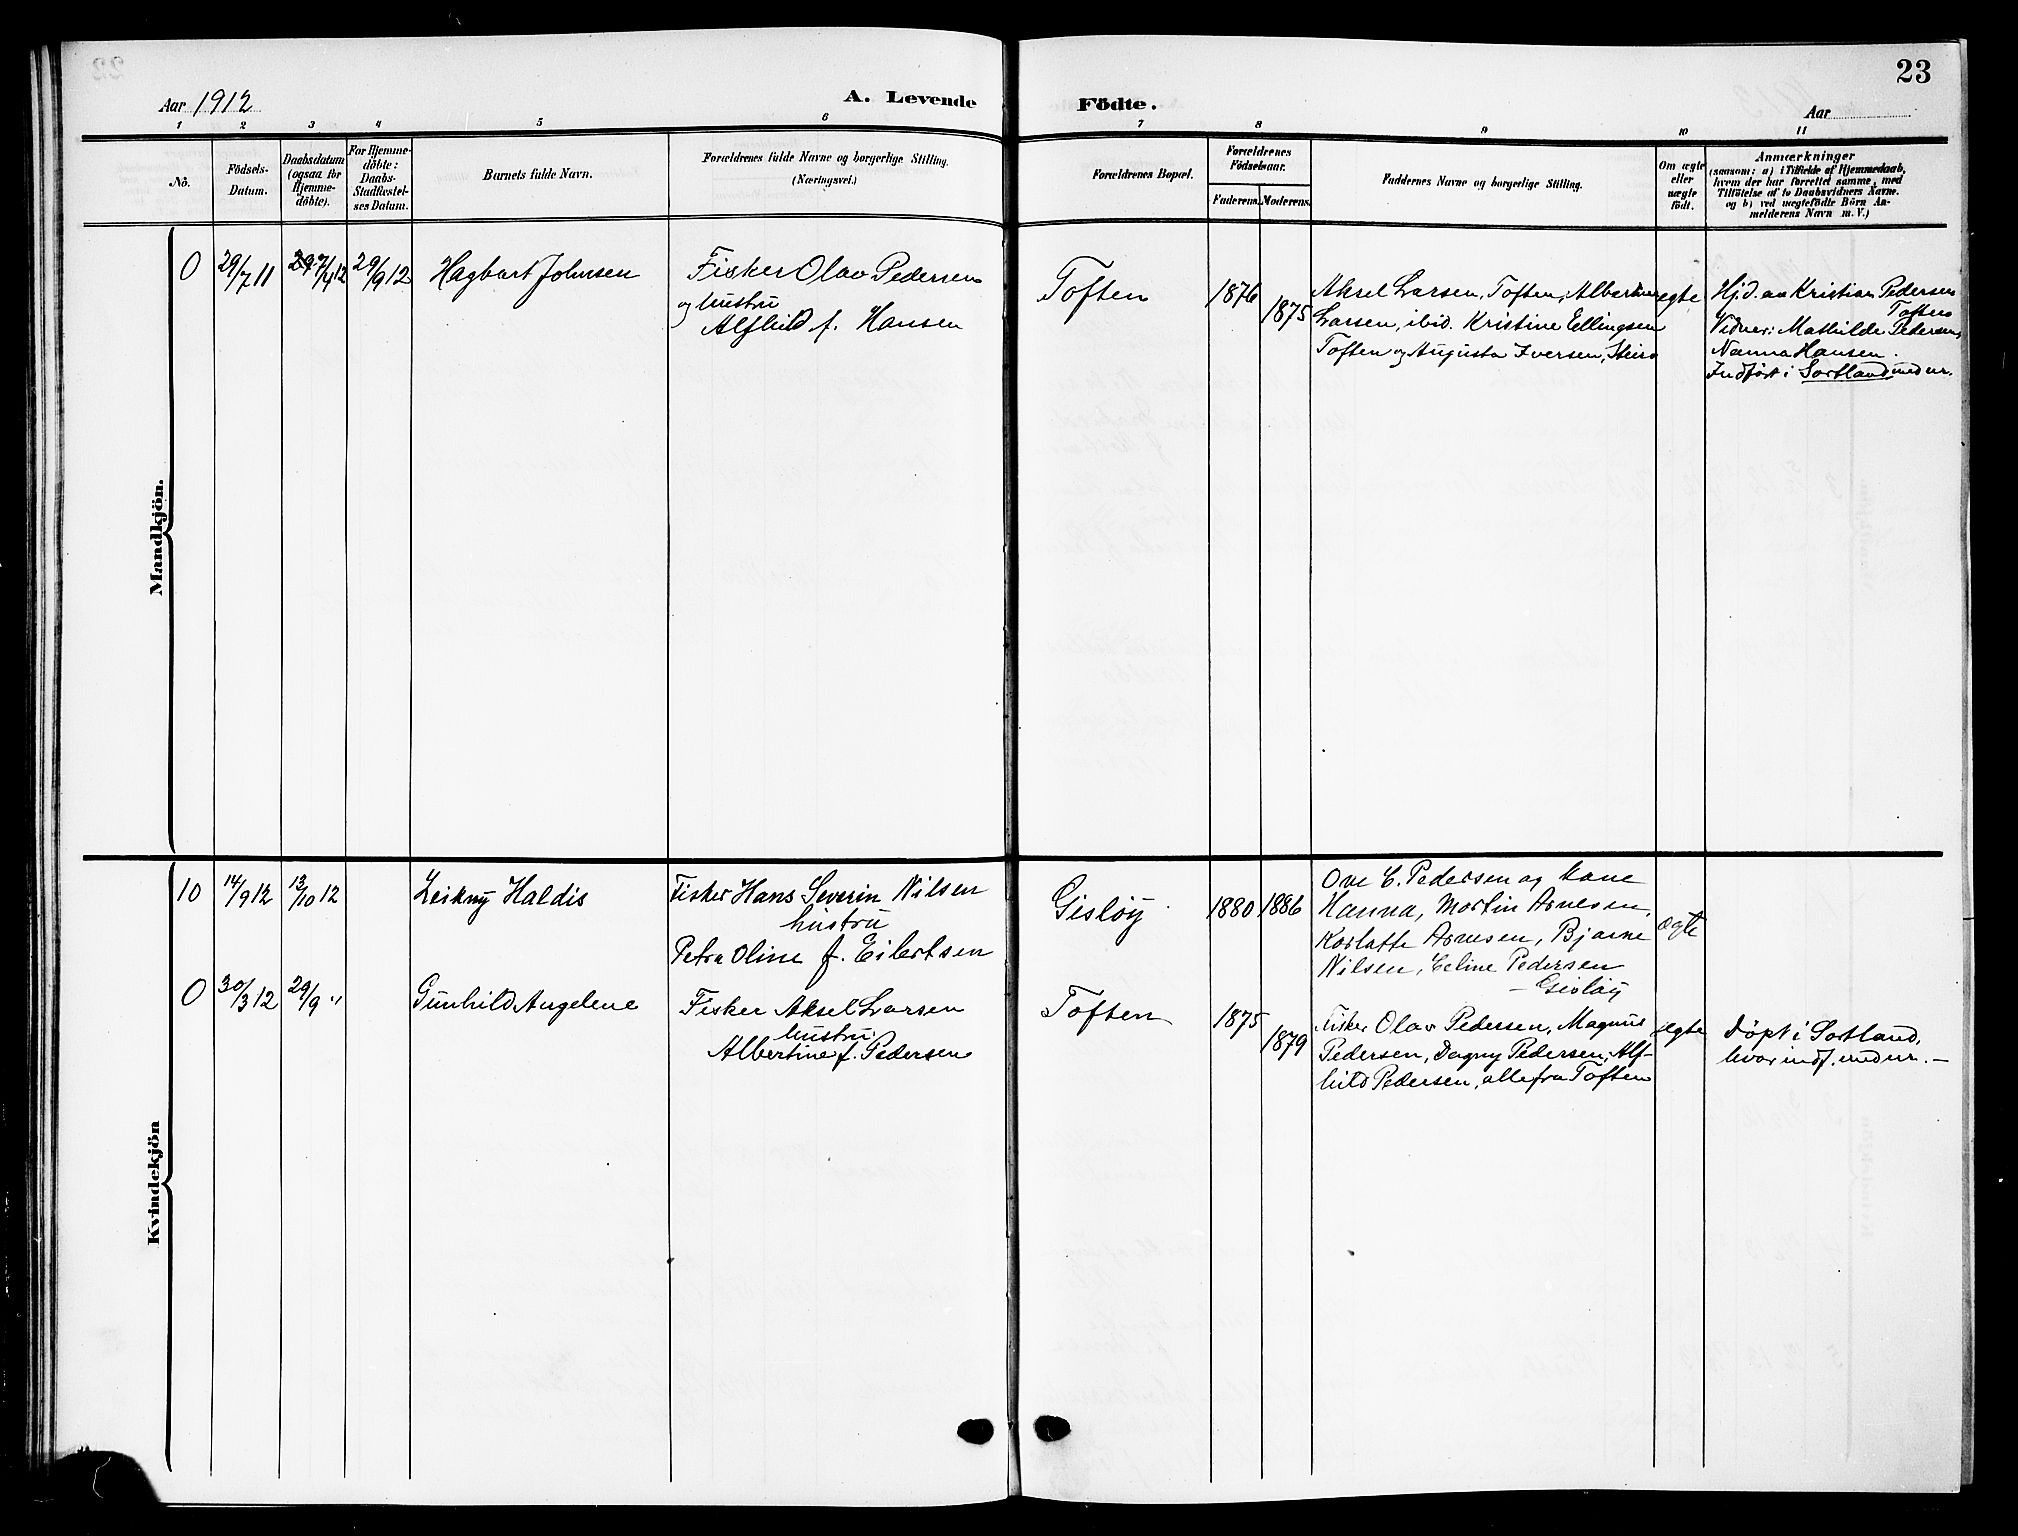 23
Aar 1912
A. Levende Födte.
Aar
1 2 3 4 5 6 7 8 9 10 11
No.
Födsels-
Datum.
Daabsdatum
(ogsaa for
Hjemme-
döbte).
For Hjemme-
döbte:
Daabs-
Stadfæstel-
ses Datum.
Barnets fulde Navn.
Forældrenes fulde Navne og borgerlige Stilling.
(Næringsvei.)
Forældrenes Bopæl.
Forældrenes
Födselsaar.
Faderens. Moderens.
Faddernes Navne og borgerlige Stilling.
Om ægte
eller
uægte
födt.
Anmærkninger
(saasom: a) i Tilfælde af Hjemmedaab,
hvem der har forrettet samme, med
Tilföielse af to Daabsvidners Navne.
og b) ved uægtefödte Börn An-
melderens Navn m. V.)
Mandkjön.
0 29/7 11
29/9 12
Hagbart Johnsen
Fisker Olav Pedersen
og hustru
Alfhild f. Hansen
Toften
1876
1875
Aksel Larsen, Toften, Albertine
Larsen, ibid. Kristine Ellingsen
Toften og Augusta Iversen, Steiro
egte
Hj.d. av Kristian Pedersen
Toften
Vidner: Mathilde Pedersen,
Nanna Hansen.
Indført i Sortland under nr.
Kvindekjön
10 14/9 12 13/10 12
Leikny Haldis
Fisker Hans Severin Nilsen
hustru
Petra Oline f. Eilertsen
Gisløy
1880 1886
Ove C. Pedersen og kone
Hanna, Martin Arnesen,
Karlotte Arnesen, Bjarne
Nilsen, Celine Pedersen
- Gisløy
ægte
0 30/3 12 29/9 "
Gunhild Angelene
Fisker Aksel Larsen
hustru
Albertine f. Pedersen
Toften
1875
1879
Fisker Olav Pedersen, Magnus
Pedersen, Dagny Pedersen, Alf-
hild Pedersen, alle fra Toften
ægte
Døpt i Sortland,
hvor indf. under nr. -